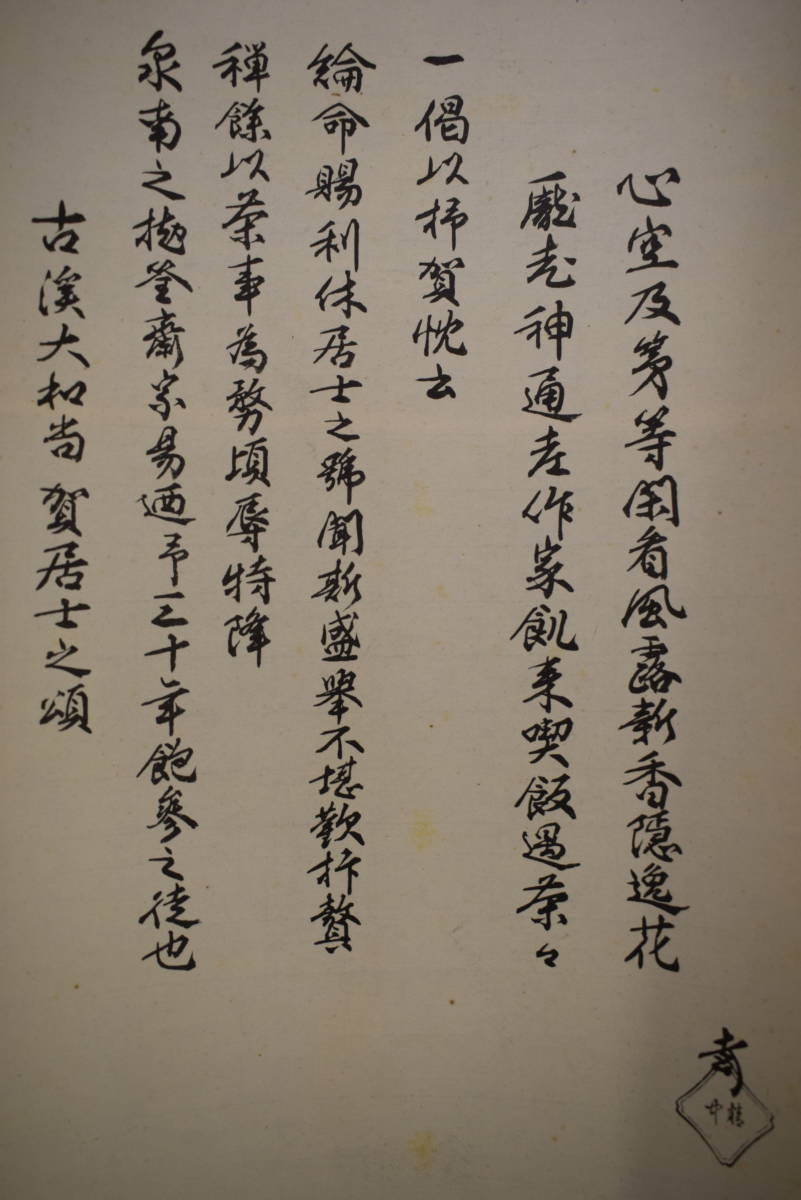 古溪大和尚 賀居士之頌
泉南之抛筌齋宗易廼予三十年飽參之徒也
禅餘以茶事為務頃辱特降
綸命賜利休居士之號聞斯盛舉不堪歡抃贅
一偈以抒賀忱云
龐老神通老作家飢来喫飯遇茶々
心空及第等閑看風露新香隠逸花